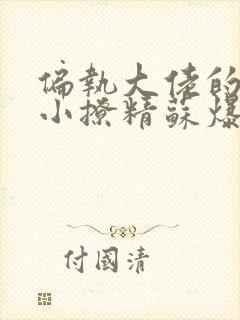 偏執大佬的
小撩精蘇爆
付國清